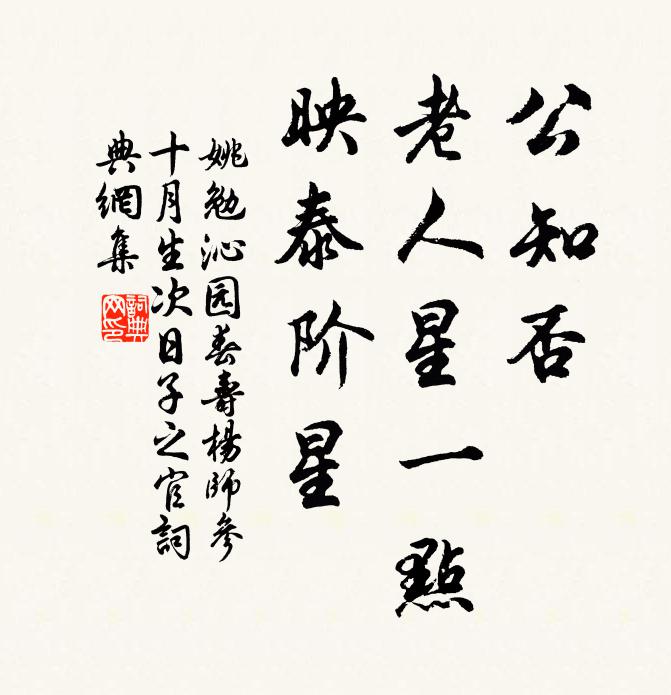 公知否
老人星一點
映泰阶星
姚勉沁园春壽楊師參
十月生次日子之官詞
典網集
詞典網印